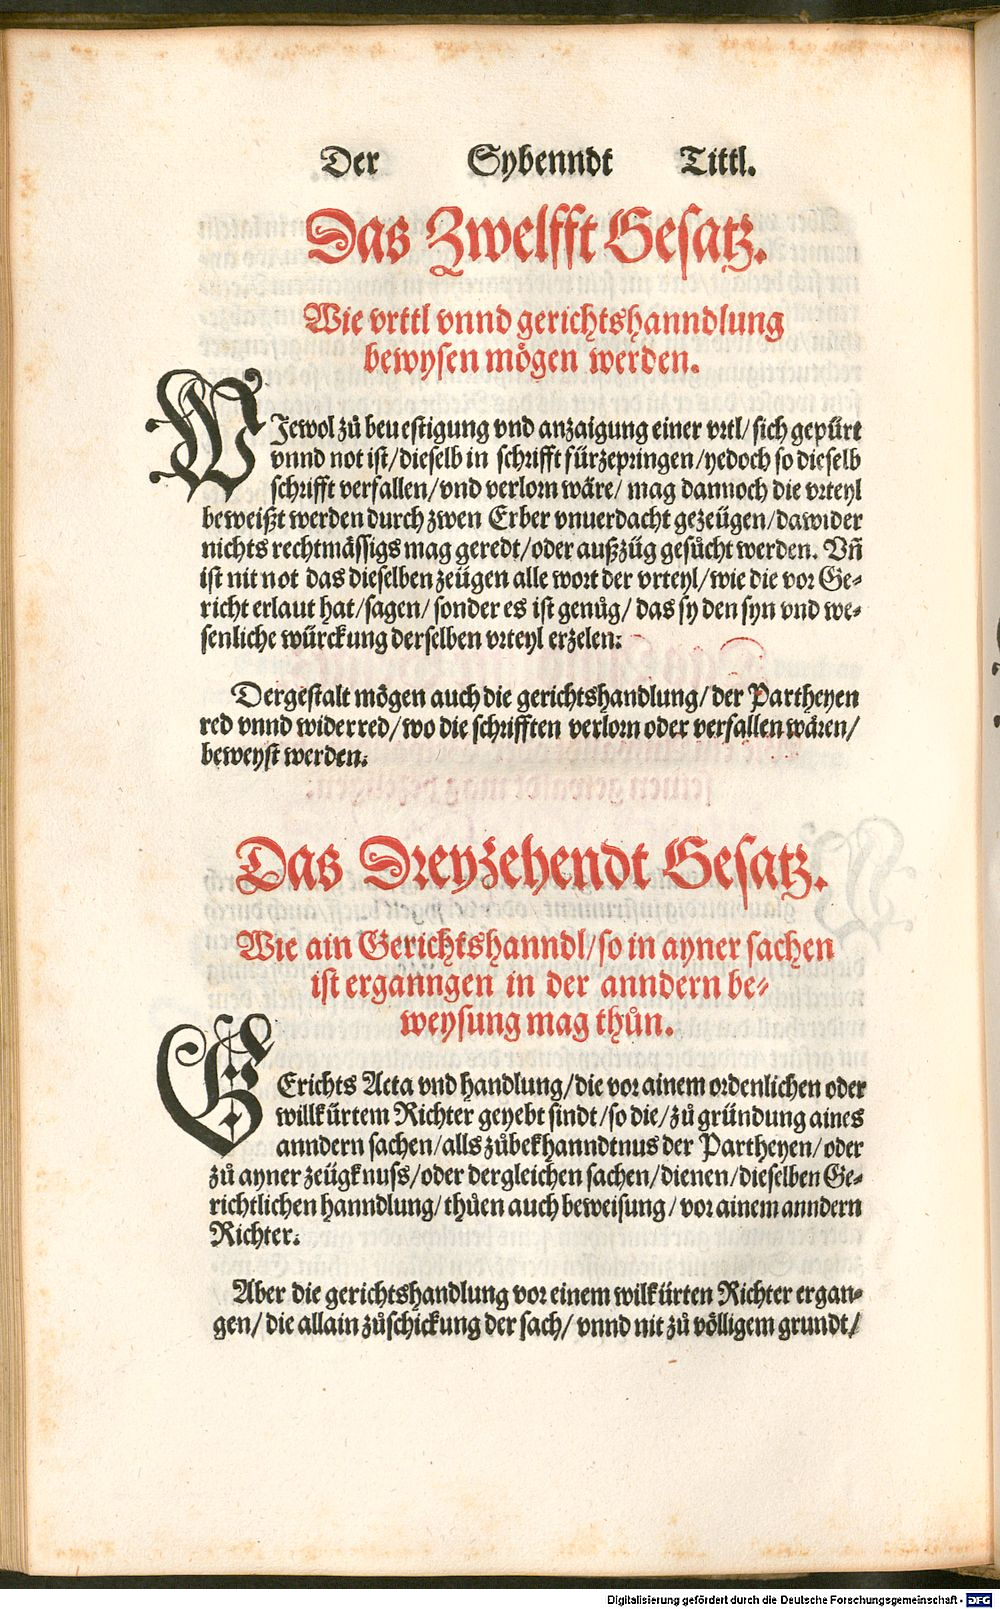 Der Sybenndt Tittl.
Das Zwelfft Gesatz.
Wie vrttl vnnd gerichtshanndlung
bewysen mögen werden.
WJewol zů beuestigung vnd anzaigung einer vrtl/ sich gepürt
vnnd not ist/ dieselb in schrifft fürzepringen/ yedoch so dieselb
schrifft verfallen/ vnd verlorn wäre/ mag dannoch die vrteyl
beweißt werden durch zwen Erber vnuerdacht gezeügen/ dawider
nichts rechtmässigs mag geredt/ oder außzüg gesůcht werden. Vñ
ist nit not das dieselben zeügen alle wort der vrteyl/ wie die vor Ge-
richt erlaut hat/ sagen/ sonder es ist genůg/ das sy den syn vnd we-
senliche würckung derselben vrteyl erzelen:
Dergestalt mögen auch die gerichtshandlung/ der Partheyen
red vnnd widerred/ wo die schrifften verlorn oder verfallen wären/
beweyst werden.
Das Dreyzehendt Gesatz.
Wie ain Gerichtshanndl/ so in ayner sachen
ist erganngen in der anndern be-
weysung mag thůn.
GErichts Acta vnd handlung/ die vor ainem ordenlichen oder
willkürtem Richter geyebt sindt/ so die/ zů gründung aines
anndern sachen/ alls zůbekhanndtnus der Partheyen/ oder
zů ayner zeügknuss/ oder dergleichen sachen/ dienen/ dieselben Ge-
richtlichen hanndlung/ thůen auch beweisung/ vor ainem anndern
Richter.
Aber die gerichtshandlung vor einem wilkürten Richter ergan-
gen/ die allain zůschickung der sach/ vnnd nit zů völligem grundt/
Digitalisierung gefördert durch die Deutsche Forschungsgemeinschaft - DFG